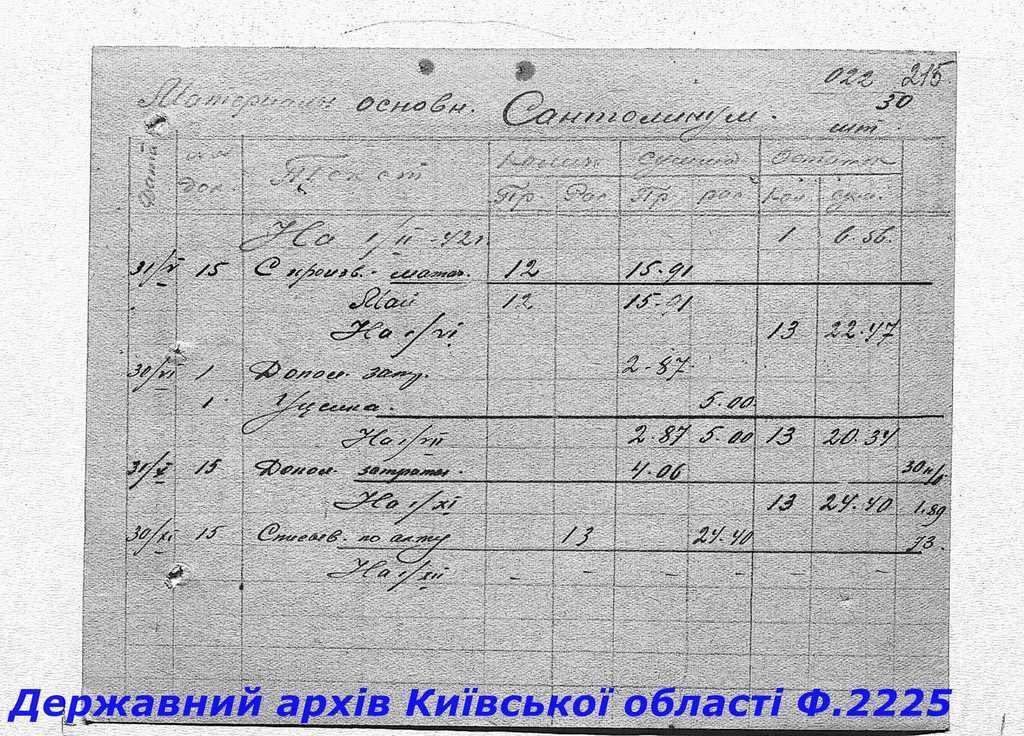 022 215
Материалы основн. Сантолинум. 30
шт.
Дата № док. Текст Колич. Сумма Остаток
Пр. Рас Пр. рас Кол. сум.
На 1/II-42г. 1 6.56.
31/V 15 С произв. - матер. 12 15.91
Май 12 15.91
На 1/VI 13 22.47
30/VI 1 Допол. затр. 2.87
1 Уценка. 5.00
На 1/VII 2.87 5.00 13 20.34
31/X 15 Допол. затраты. 4.06 30
На 1/XI 13 24.40 1.89
30/XI 15 Списыв. по акту 13 24.40 73.
На 1/XII - - - - - -
Державний архів Київської області Ф.2225